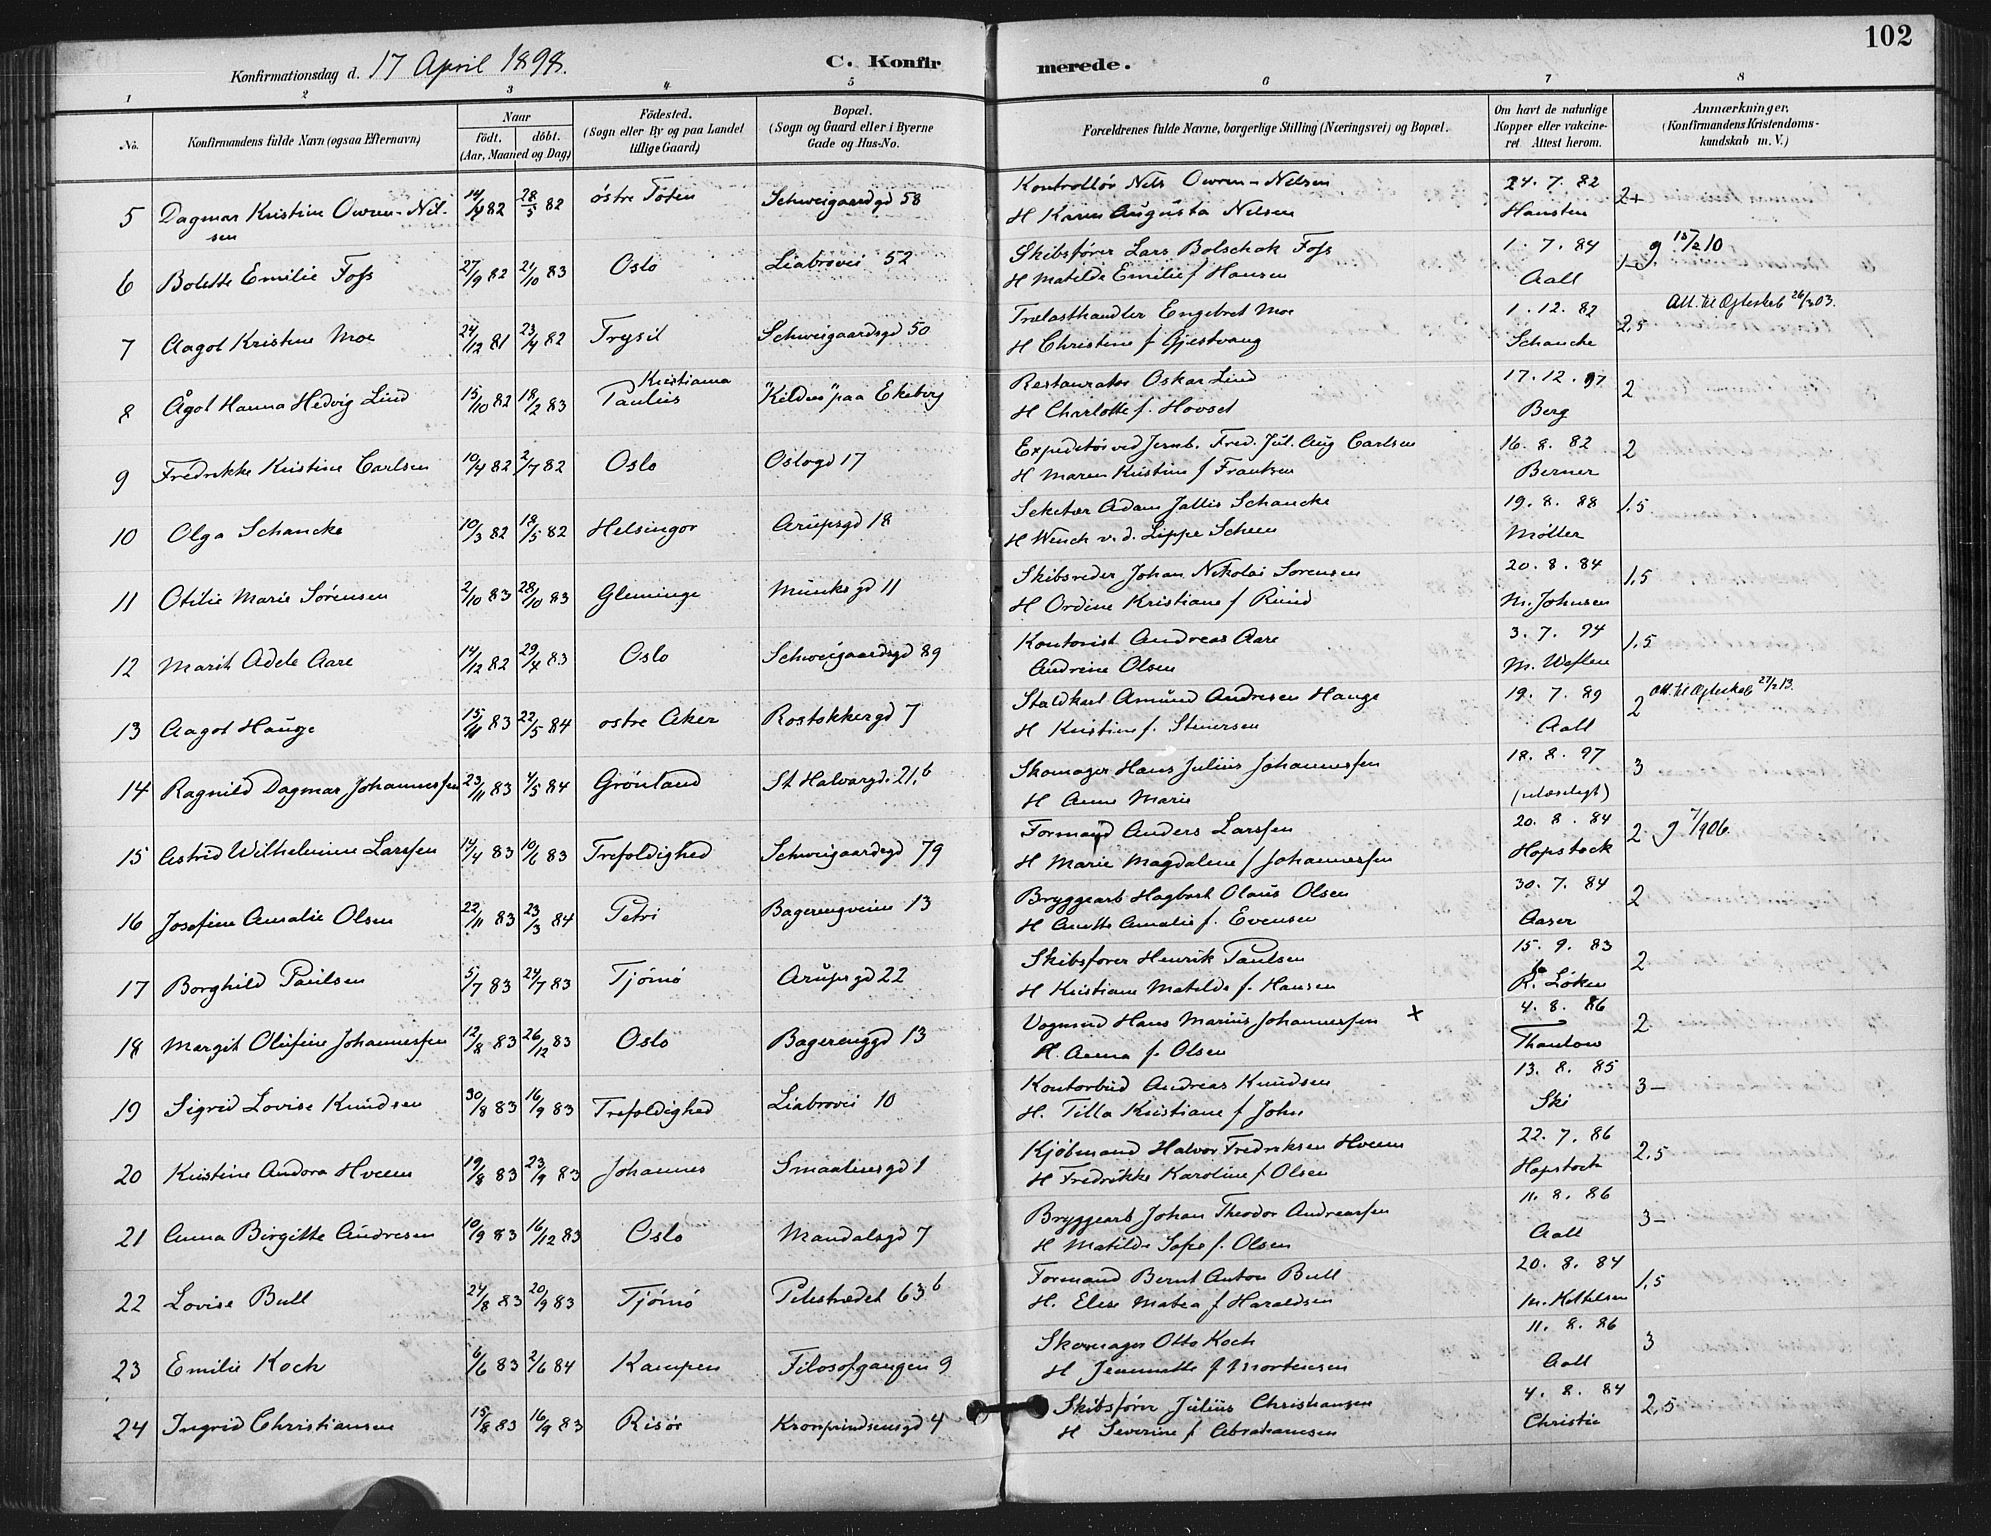 102
Konfirmationsdag d. 17 April 1898. C. Konfirmerede.
1 2 3 4 5 6 7 8
No. Konfirmandens fulde Navn (ogsaa Efternavn) Naar födt. döbt. (Aar, Maaned og Dag) Födested. (Sogn eller By og paa Landet tillige Gaard) Bopæl. (Sogn og Gaard eller i Byerne Gade og Hus-No. Forældrenes fulde Navne, borgerlige Stilling (Næringsvei) og Bopæl. Om havt de naturlige Kopper eller vakcineret. Attest herom. Anmærkninger, (Konfirmandens Kristendomskundskab m.V.)
5 Dagmar Kristine Owren-Nilsen 14/4 82 28/5 82 östre Toten Schweigaardgd 58 Kontrollör Nils Owren-Nelsen 24. 7. 82 2+
H Karen Augusta Nelsen Hansten
6 Bolette Emilie Foss 27/9 82 21/10 83 Oslo Liabrovei 52 Skibsförer Lars Bolschak Foss 1. 7. 84 1- g 15/2 10
H Matilde Emilie f Hansen Aall
7 Aagot Kristine Moe 24/12 81 23/4 82 Trysil Schweigaardsgd 50 Trælasthandler Engebret Moe 1. 12. 82 2,5 Att. til Ægteskab 26/3 03.
H Christine f Gjestvang Schancke
8 Ågot Hanna Hedvig Lind 15/10 82 18/2 83 Kristiania Paulus "Kilden" paa Ekeberg Restauratør Oskar Lind 17. 12. 97 2
H Charlotte f. Hovset Berg
9 Fredrikke Kristine Carlsen 10/4 82 2/7 82 Oslo Oslogd 17 Expeditör ved Jernb. Fred. Jul. Aug Carlsen 16. 8. 82 2
H Maren Kristine f Frantzen Berner
10 Olga Schancke 10/3 82 18/5 82 Helsingør Arupsgd 18 Seketær Adam Jallis Schancke 19. 8. 88 1.5
H Wench v. d. Lippe Scheen Møller
11 Otilie Marie Sørensen 2/10 83 28/10 83 Glemminge Munksgd 11 Skibsreder Johan Nikolai Sørensen 20. 8. 84 1,5
H Ordine Kristiane f Ruud M. Johnsen
12 Marit Adele Aare 14/12 82 29/4 83 Oslo Schweigaardsgd 89 Kontorist Andreas Aare 3. 7. 94 1,5
Andrine Olsen M. Weflen
13 Aagot Hauge 15/11 83 22/5 84 østre Aker Rostokkergd 7 Staldkarl Amund Andresen Hauge 19. 7. 89 2 Att. til Ægteskab 27/2 13.
H Kristine f. Stenersen Aall
14 Ragnild Dagmar Johannessen 23/11 83 4/5 84 Grönland St Halvargd. 21,b Skomager Hans Julius Johannessen 18. 8. 97 3
H Anne Marie (ulæseligt)
15 Astrid Wilhelmine Larssen 14/4 83 10/6 83 Trefoldighed Schweigaardsgd 79 Formand Anders Larssen 20. 8. 84 2 g 7/9 06.
H Marie Magdalene f Johannessen Hopstock
16 Josefine Amalie Olsen 22/11 83 23/3 84 Petri Bagerengveien 13 Bryggearb Hagbart Olaus Olsen 30. 7. 84 2
H Anette Amalie f. Evensen Aaser
17 Borghild Paulsen 5/7 83 24/7 83 Tjömö Arupsgd 22 Skibsfører Henrik Paulsen 15. 9. 83 2
H Kristiane Matilde f. Hansen R. Löken
18 Margit Olufine Johannessen 12/8 83 26/12 83 Oslo Bagerenggd 13 Vognmd Hans Marius Johannessen × 4. 8. 86 2
H. Anna f. Olsen Thaulow
19 Sigrid Lovise Knudsen 30/8 83 16/9 83 Trefoldighed Liabrovei 10 Kontorbud Andreas Knudsen 13. 8. 85 3-
H. Tilla Kristiane f John Ski
20 Kristine Andora Hveem 19/8 83 23/9 83 Johannes Smaalensgd 1 Kjöbmand Halvor Fredriksen Hveem 22. 7. 86 2,5
H Fredrikke Karoline f Olsen Hopstock
21 Anna Birgitte Andresen 10/9 83 16/12 83 Oslo Mandalsgd 7 Bryggearb Johan Theodor Andreassen 11. 8. 86 3-
H Matilde Sofie f. Olsen Aall
22 Lovise Bull 24/8 83 20/9 83 Tjömö Pilestrædet 63b Formand Bernt Anton Bull 20. 8. 84 1,5
H. Elise Matea f Haraldsen
23 Emilie Koch 6/6 83 2/6 84 Kampen Filosofgangen 9 Skomager Otto Koch 11. 8. 86 3
H Jeannette f Mortensen Aall
24 Ingrid Christiansen 15/8 83 16/9 83 Risør Kronprindsensgd 4 Skibsfører Julius Christiansen 4. 8. 84 2,5
H Severine f Abrahamsen Christie